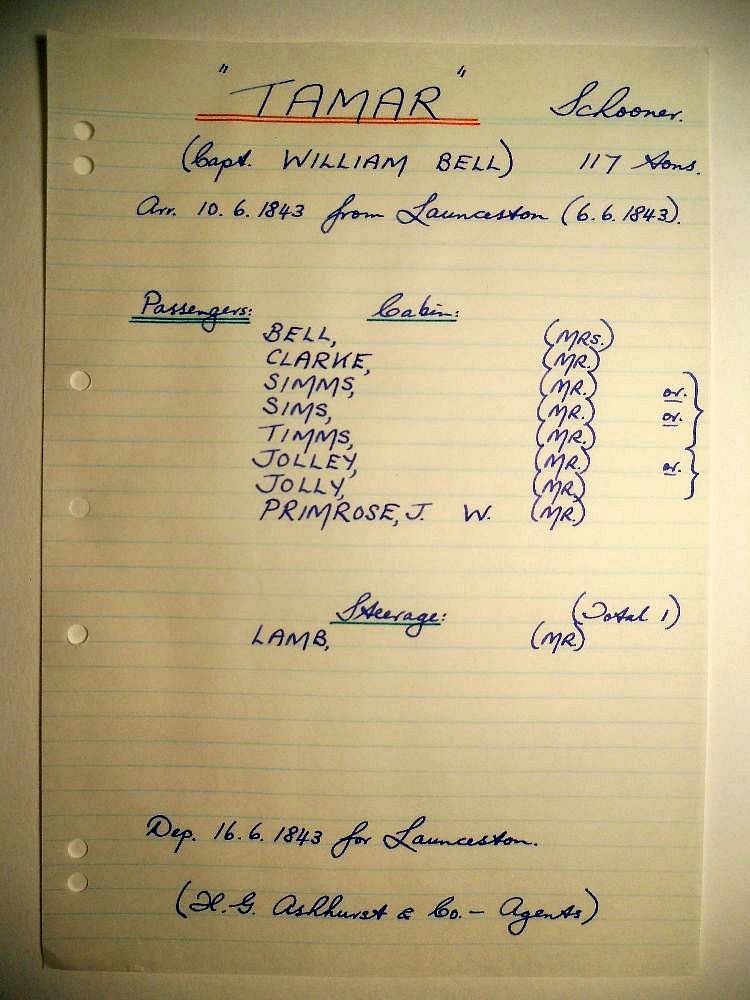 "TAMAR" Schooner.
(Capt. WILLIAM BELL) 117 tons.
Arr. 10.6.1843 from Launceston (6.6.1843).
Passengers: Cabin:
BELL, (MRS.)
CLARKE, (MR.)
SIMMS, (MR.) or.
SIMS, (MR.) or.
TIMMS, (MR.)
JOLLEY, (MR.) or.
JOLLY, (MR.)
PRIMROSE, J. W. (MR.)
Steerage: (Total 1)
LAMB, (MR.)
Dep. 16.6.1843 for Launceston.
(H.G. Ashhurst & Co. - Agents)